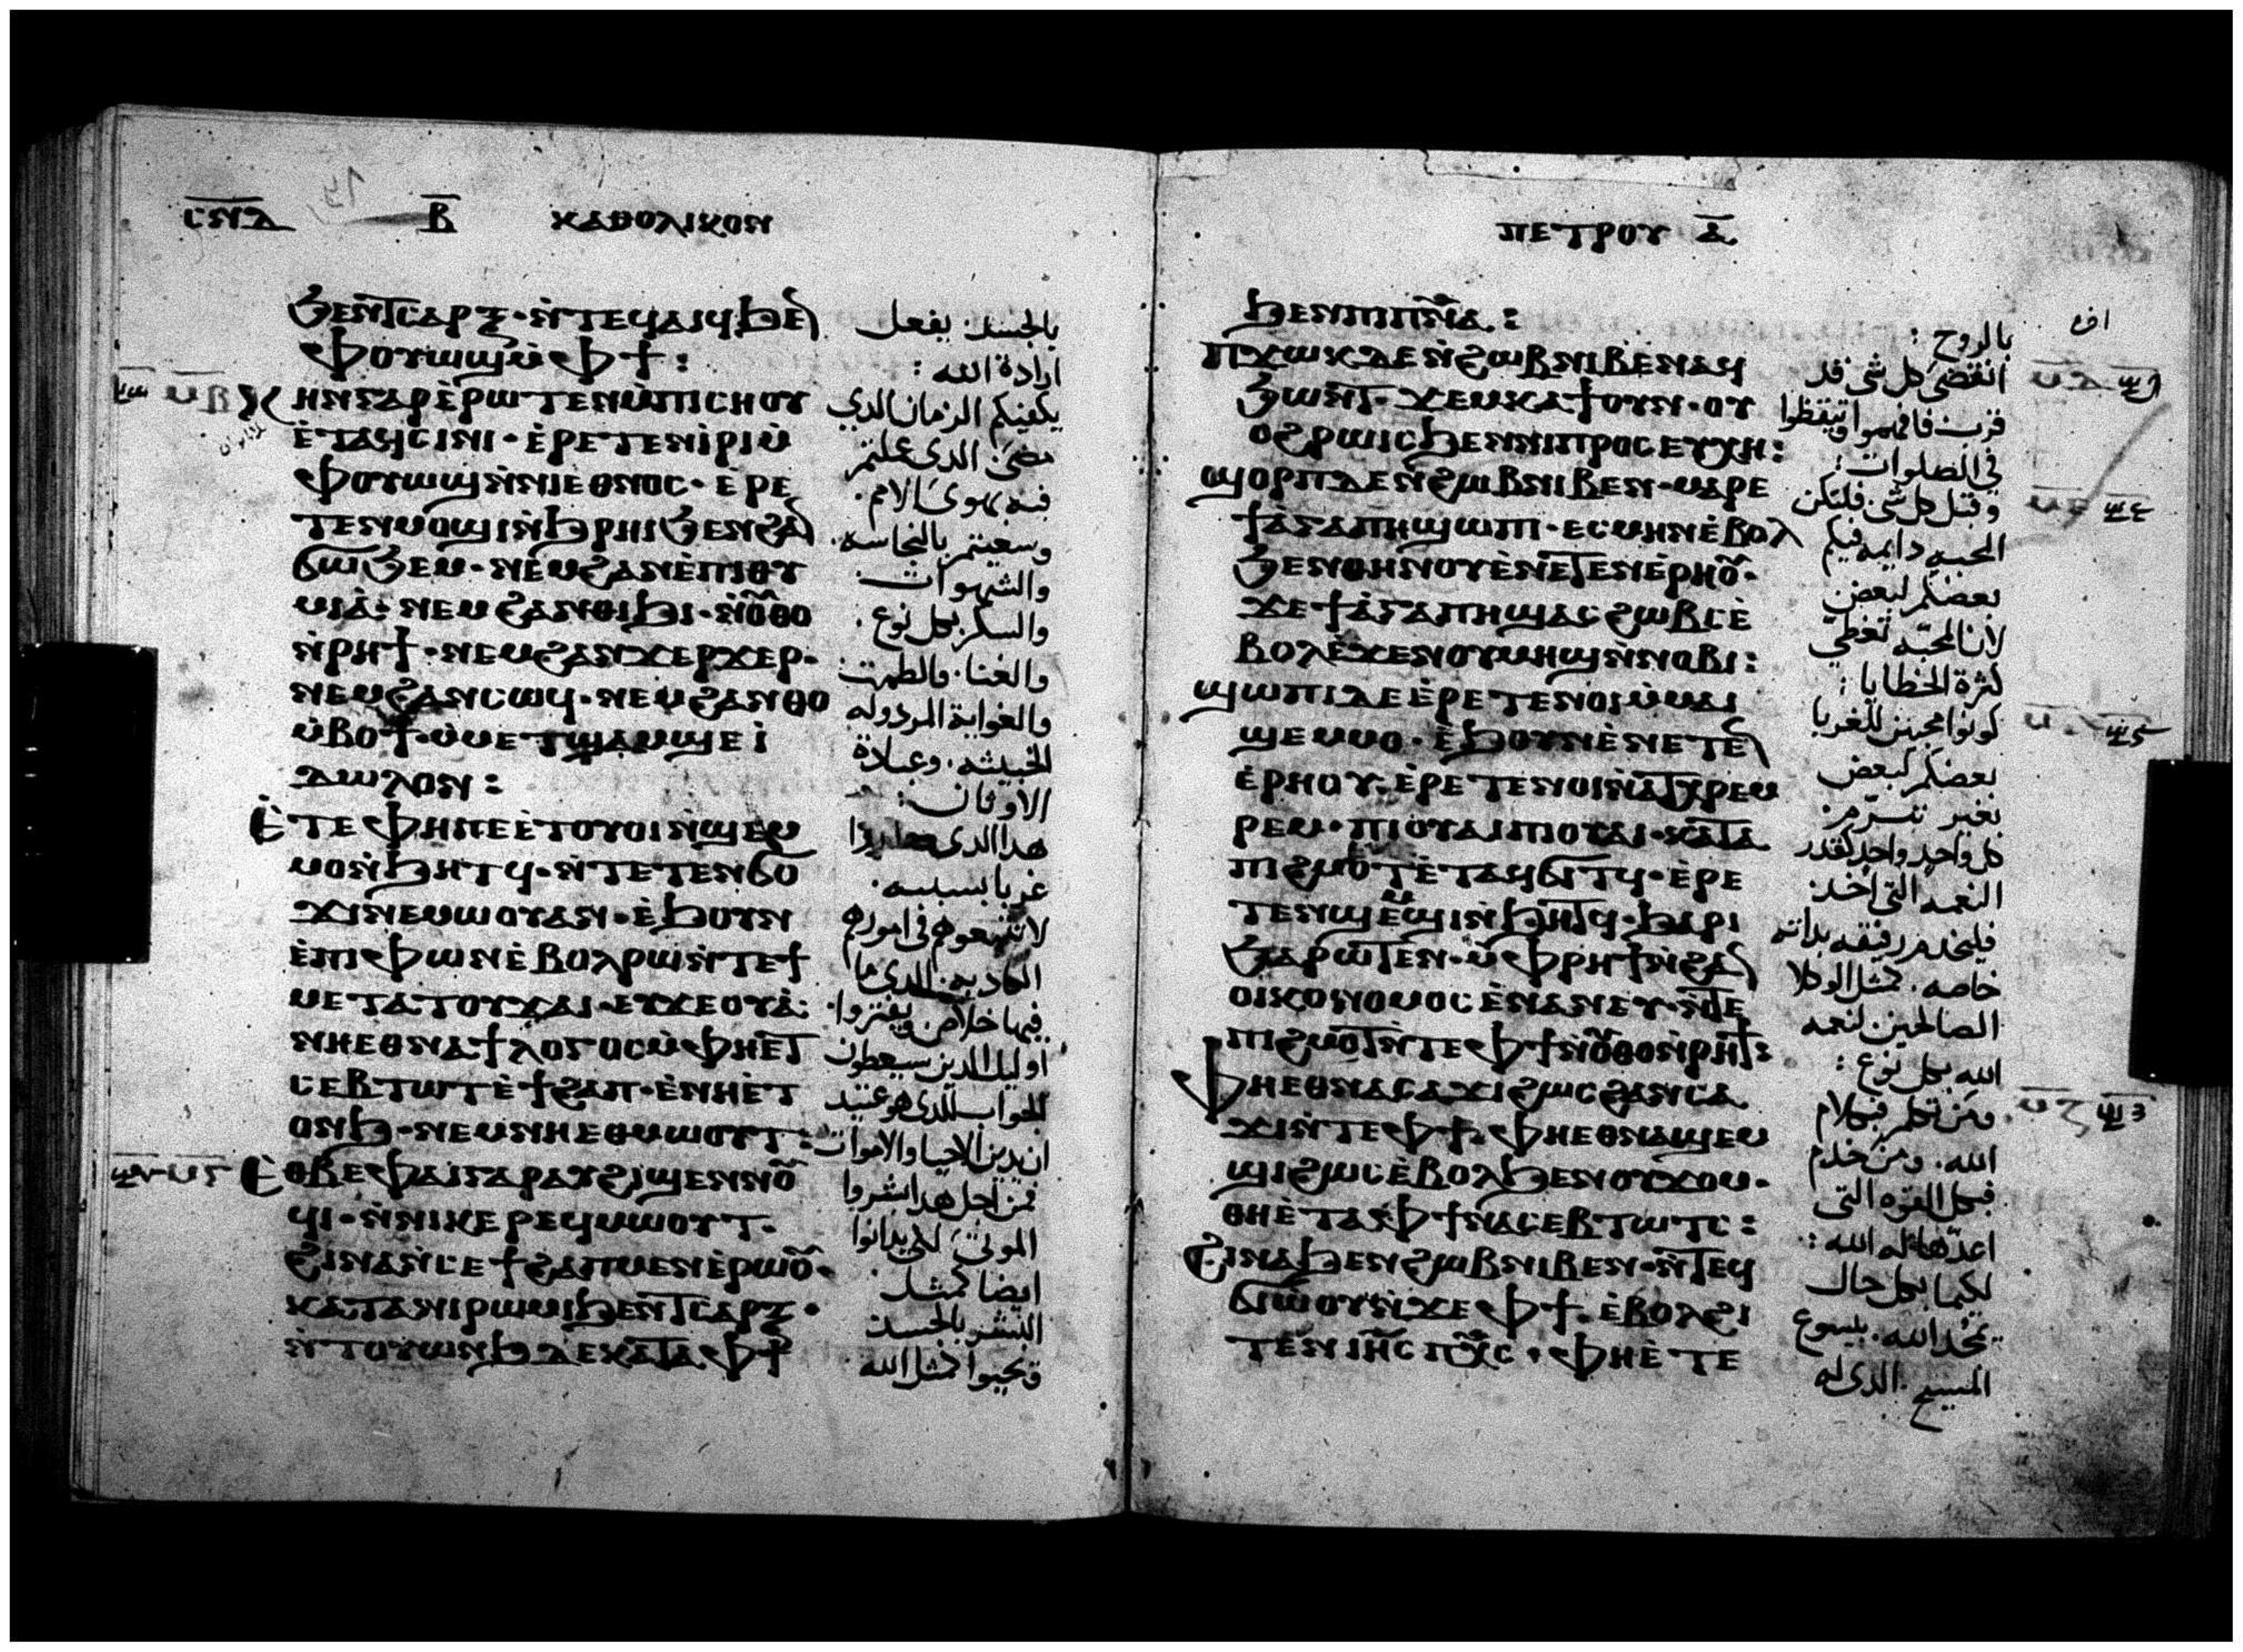 ⲥⲛⲇ ⲃ ⲕⲁⲑⲟⲗⲓⲕⲟⲛ
ϧⲉⲛⲧⲥⲁⲣⲝ · ⲛ̀ⲧⲉϥⲁⲓϥ ϧⲉⲛ
ⲫⲟⲩⲱϣ ⲙ̀ⲫϯ :
ⲕⲏⲛ ⲅⲁⲣ ⲉ̀ⲣⲱⲧⲉⲛ ⲙ̀ⲡⲓⲥⲏⲟⲩ
ⲉ̀ⲧⲁϥⲥⲓⲛⲓ · ⲉ̀ⲣⲉⲧⲉⲛⲓ̀ⲣⲓ ⲙ̀
ⲫⲟⲩⲱϣ ⲛ̀ⲛⲓⲉⲑⲛⲟⲥ · ⲉ̀ⲣⲉ
ⲧⲉⲛⲙⲟϣⲓ ⲛ̀ϧⲣⲏⲓ ϧⲉⲛ ϩⲁⲛ
ϭⲱϧⲉⲙ · ⲛⲉⲙ ϩⲁⲛⲉ̀ⲡⲓⲑⲩ
ⲙⲓⲁ̀ · ⲛⲉⲙ ϩⲁⲛⲑⲓϧⲓ · ⲛ̀ⲟⲩⲑⲟ
ⲛ̀ⲣⲏϯ · ⲛⲉⲙ ϩⲁⲛϫⲉⲣϫⲉⲣ ·
ⲛⲉⲙ ϩⲁⲛⲥⲱϥ · ⲛⲉⲙ ϩⲁⲛⲑⲟ
ⲙ̀ⲃⲟϯ · ⲙ̀ⲙⲉⲧϣⲁⲙϣⲉ ⲓ̀
ⲇⲱⲗⲟⲛ :
ⲉ̀ⲧⲉ ⲫⲏ ⲡⲉ ⲉ̀ⲧⲟⲩⲟⲓ ⲛ̀ϣⲉⲙ
ⲙⲟ ⲛ̀ϧⲏⲧϥ · ⲛ̀ⲧⲉⲧⲉⲛϭⲟ
ϫⲓ ⲛⲉⲙⲱⲟⲩ ⲁⲛ · ⲉ̀ϧⲟⲩⲛ
ⲉ̀ⲡⲓⲫⲱⲛ ⲉ̀ⲃⲟⲗ ⲣⲱ ⲛ̀ⲧⲉϯ
ⲙⲉⲧⲁⲧⲟⲩϫⲁⲓ · ⲉⲩϫⲉⲟⲩⲁ̀ :
ⲛⲏⲉⲑⲛⲁϯⲗⲟⲅⲟⲥ ⲙ̀ⲫⲏⲉⲧ
ⲥⲉⲃⲧⲱⲧ ⲉ̀ϯϩⲁⲡ · ⲉ̀ⲛⲏⲉ̀ⲧ
ⲟⲛϧ · ⲛⲉⲙ ⲛⲏⲉⲑⲙⲱⲟⲩⲧ :
ⲉ̀ⲑⲃⲉ ⲫⲁⲓ ⲅⲁⲣ ⲁⲩϩⲓϣⲉⲛⲛⲟⲩ
ϥⲓ · ⲛ̀ⲛⲓⲕⲉⲣⲉϥⲙⲱⲟⲩⲧ ·
ϩⲓⲛⲁ ⲛ̀ⲥⲉϯϩⲁⲡ ⲙⲉⲛ ⲉ̀ⲣⲱⲟⲩ ·
ⲕⲁⲧⲁ ⲛⲓⲣⲱⲙⲓ ϧⲉⲛⲧⲥⲁⲣⲝ ·
ⲛ̀ⲧⲟⲩⲱⲛϧ ⲇⲉ ⲕⲁⲧⲁ ⲫϯ
بالجسد يفعل
ارادة الله :
يكفيكم الزمان الدي
مضى الدي عملتم
فيه بهوى الامم ·
وسعيتم بالنجاسه ·
والشهوات
والسكر بكل نوع ·
والغنا · والطمت
والغواية المردوله
الخبيثه · وعبادة
الاوثان :
هدا الدي
غربا بسببه ·
في امورهم
فيها خلاص ويفتروا ·
اوليك الدين سيعطون
الجواب للدي هو عتيد
ان يدين الاحيا والاموات
فمن اجل هدا بشروا
الموتى لكي يدانوا
ايضا كمثل
البشر بالجسد
ويحيوا كمثل الله
ⲡⲉⲧⲣⲟⲩ ⲁ̅
ϧⲉⲛ ⲡⲓⲡⲛⲁ :
ⲡϫⲱⲕ ⲇⲉ ⲛ̀ϩⲱⲃ ⲛⲓⲃⲉⲛ ⲁϥ
ϧⲱⲛⲧ · ϫⲉⲙⲕⲁϯ ⲟⲩⲛ · ⲟⲩ
ⲟϩ ⲣⲱⲓⲥ ϧⲉⲛ ⲛⲓⲡⲣⲟⲥⲉⲩⲭⲏ :
ϣⲟⲣⲡ ⲇⲉ ⲛ̀ϩⲱⲃ ⲛⲓⲃⲉⲛ · ⲙⲁⲣⲉ
ϯⲁ̀ⲅⲁⲡⲏ ϣⲱⲡⲓ · ⲉⲥⲙⲏⲛ ⲉ̀ⲃⲟⲗ
ϧⲉⲛ ⲑⲏⲛⲟⲩ ⲉ̀ⲛⲉⲧⲉⲛⲉ̀ⲣⲏⲟⲩ ·
ϫⲉ ϯⲁ̀ⲅⲁⲡⲏ ϣⲁⲥϩⲱⲃⲥ ⲉ̀
ⲃⲟⲗ ⲉ̀ϫⲉⲛ ⲟⲩⲙⲏϣ ⲛ̀ⲛⲟⲃⲓ :
ϣⲱⲡⲓ ⲇⲉ ⲉ̀ⲣⲉⲧⲉⲛⲟⲓ ⲙ̀ⲙⲁⲓ
ϣⲉⲙⲙⲟ · ⲉ̀ϧⲟⲩⲛ ⲉ̀ⲛⲉⲧⲉⲛ
ⲉ̀ⲣⲏⲟⲩ · ⲉ̀ⲣⲉⲧⲉⲛⲟⲓ ⲛ̀ⲁⲧⲭⲣⲉⲙ
ⲣⲉⲙ · ⲡⲓⲟⲩⲁⲓ ⲡⲓⲟⲩⲁⲓ · ⲕⲁⲧⲁ
ⲡⲓϩⲙⲟⲧ ⲉ̀ⲧⲁϥϭⲓⲧϥ · ⲉ̀ⲣⲉ
ⲧⲉⲛϣⲉⲙϣⲓ ⲛ̀ϧⲏⲧϥ · ϧⲁⲣⲓ
ϧⲁⲣⲱⲧⲉⲛ · ⲙ̀ⲫⲣⲏϯ ⲛ̀ϩⲁⲛ
ⲟⲓⲕⲟⲛⲟⲙⲟⲥ ⲉ̀ⲛⲁⲛⲉⲩ · ⲛ̀ⲧⲉ
ⲡⲓϩⲙⲟⲧ ⲛ̀ⲧⲉ ⲫϯ ⲛ̀ⲟⲩⲑⲟ ⲛ̀ⲣⲏϯ :
ⲫⲏⲉⲑⲛⲁⲥⲁϫⲓ ϩⲱⲥ ϩⲁⲛⲥⲁ
ϫⲓ ⲛ̀ⲧⲉ ⲫϯ · ⲫⲏⲉⲑⲛⲁϣⲉⲙ
ϣⲓ ϩⲱⲥ ⲉ̀ⲃⲟⲗ ϧⲉⲛ ⲟⲩϫⲟⲙ ·
ⲑⲏⲉ̀ⲧⲁ ⲫϯ ⲛⲁⲥⲉⲃⲧⲱⲧⲥ :
ϩⲓⲛⲁ ϧⲉⲛ ϩⲱⲃ ⲛⲓⲃⲉⲛ · ⲛ̀ⲧⲉϥ
ϭⲓⲱⲟⲩ ⲛ̀ϫⲉ ⲫϯ · ⲉ̀ⲃⲟⲗ ϩⲓ
ⲧⲉⲛ ⲓⲏⲥ ⲡⲭⲥ · ⲫⲏⲉ̀ⲧⲉ
بالروح :
انقضى كل شي قد
قرب فافهموا وتيقظوا
في الصلوات :
وقبل كل شي فلتكن
المحبه دايمه فيكم
بعضكم لبعض
لان المحبّه تغطي
كثرة الخطايا :
كونوا محبين للغربا
بعضكم لبعض
بغير تدمّر
كل واحد واحد كقدر
النعمه التي اخد
خاصه · كمثل الوكلا
الصالحين لنعمه
الله بكل نوع :
ومن تكلم فبكلام
الله · ومن خدم
فبكل القوه التي
اعدّها له الله :
لكيما بكل حال
يمجد الله · بيسوع
المسيح · الدي له